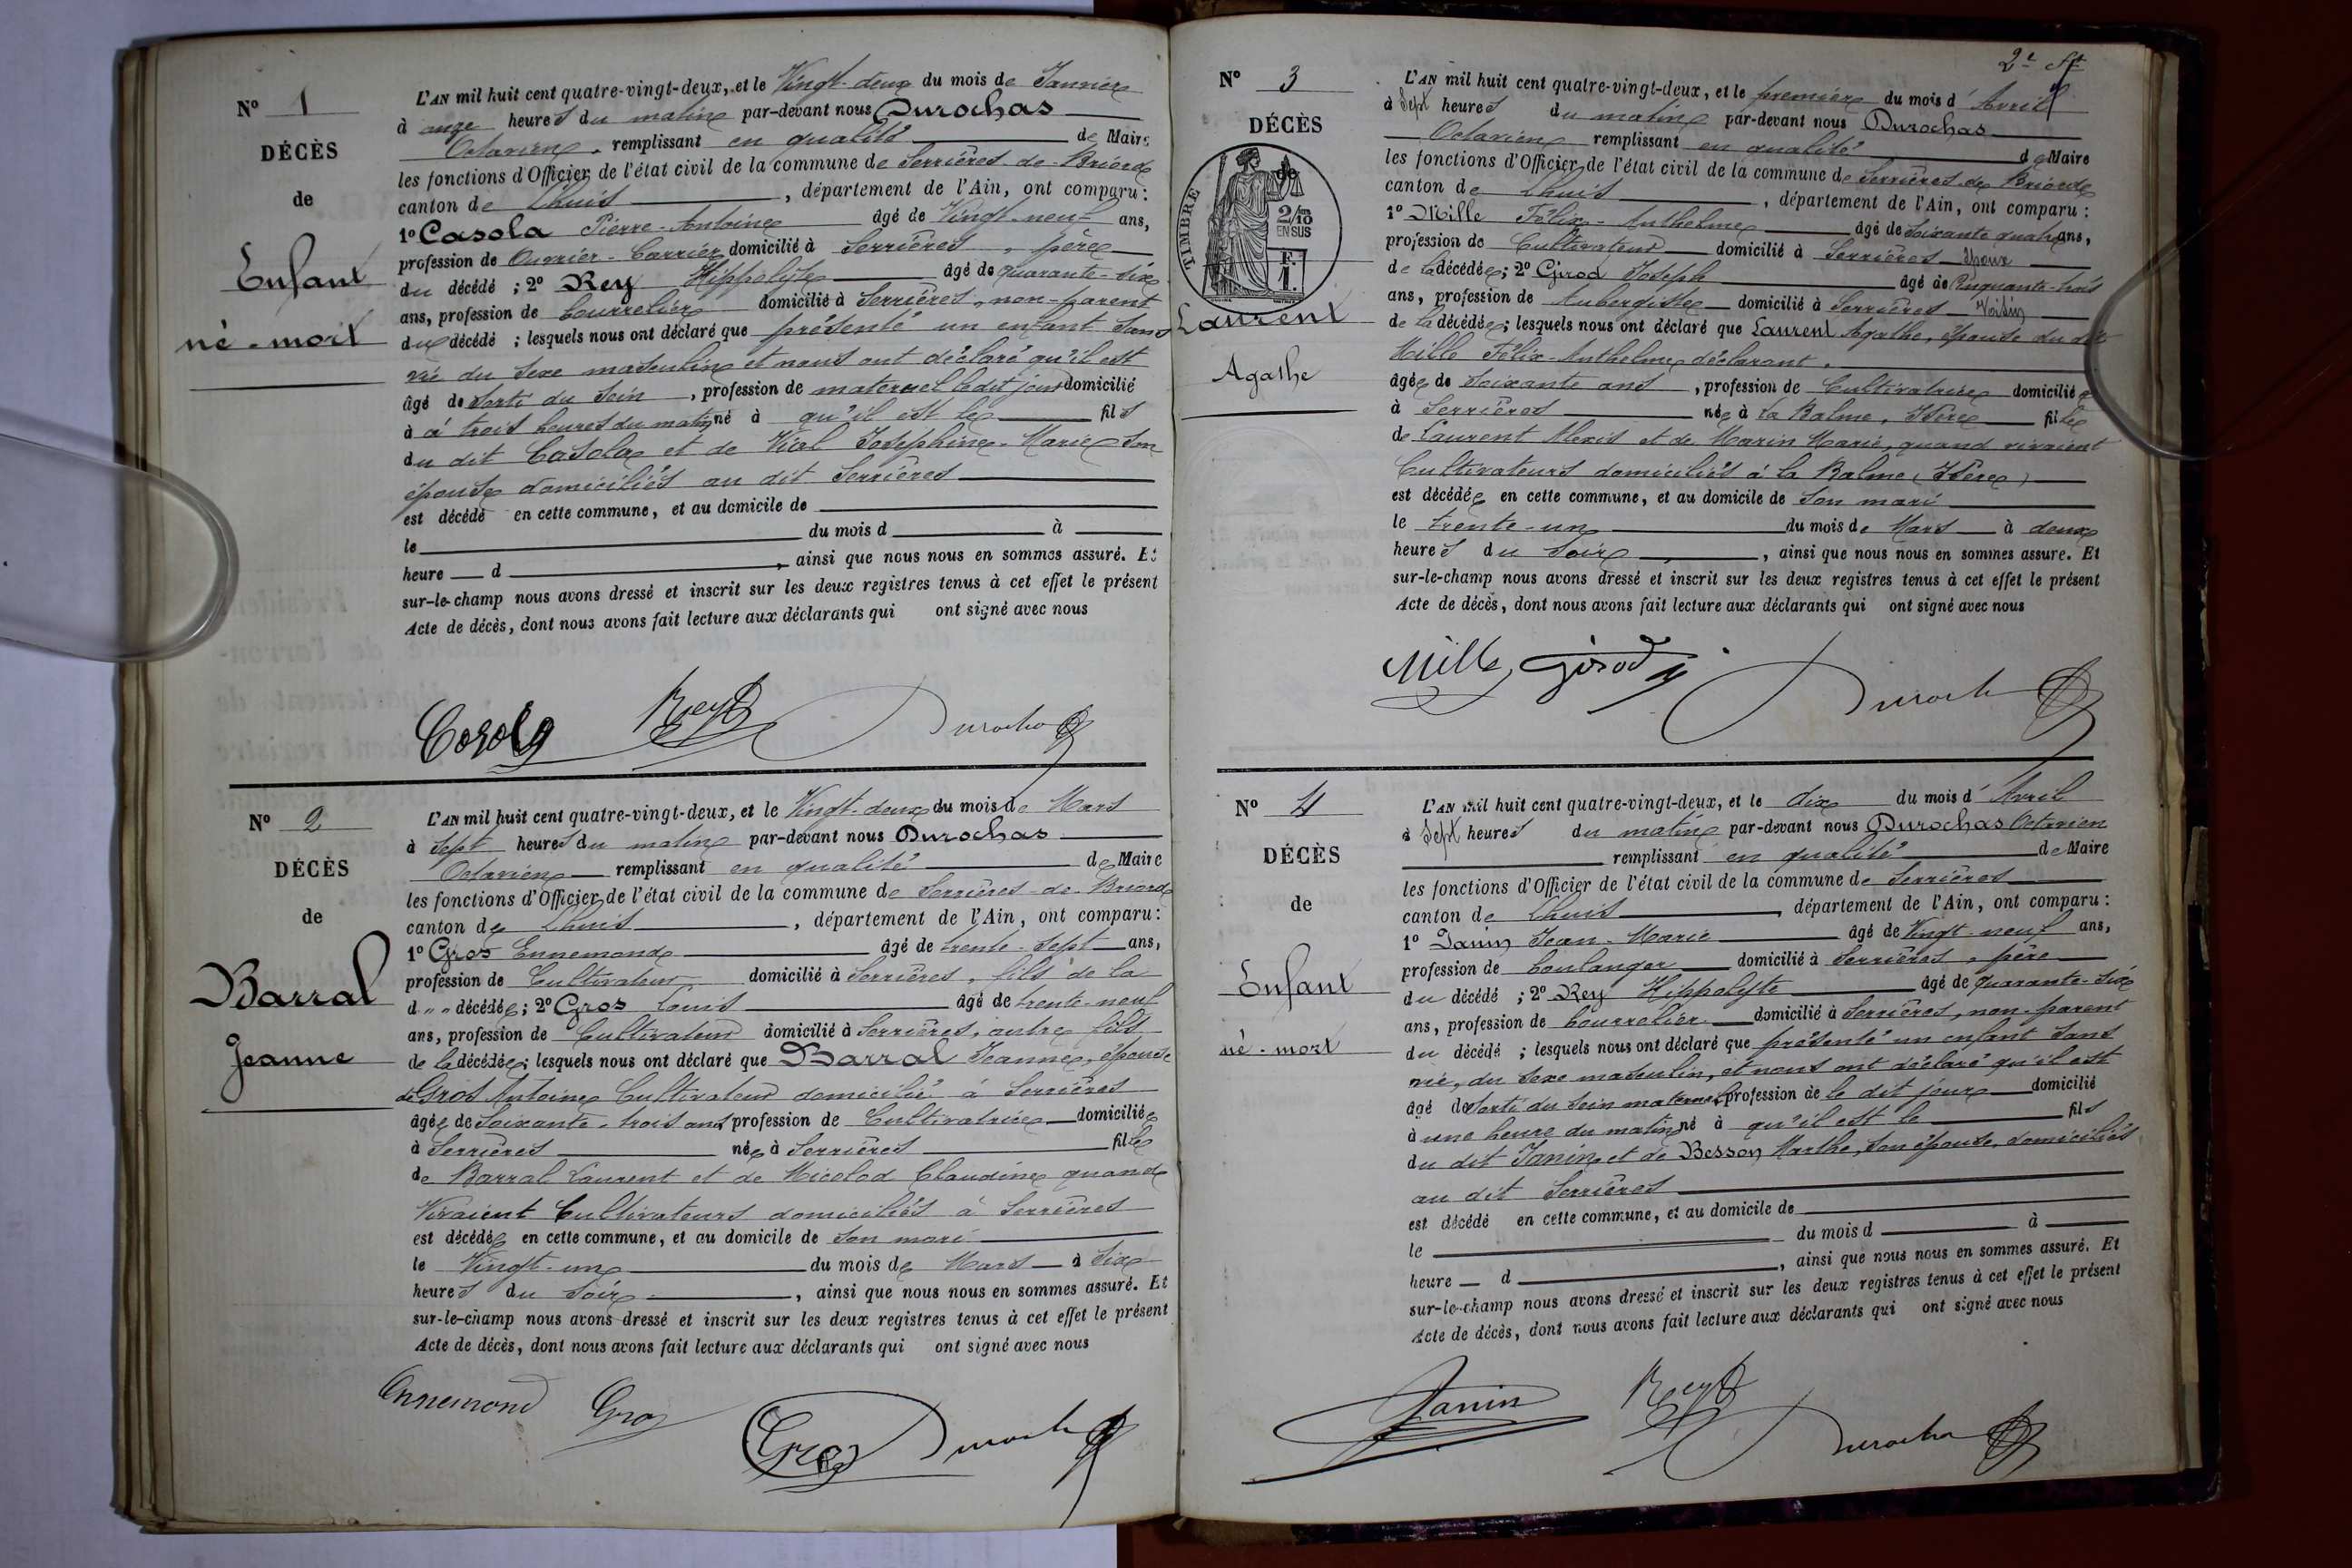 N° 1
DÉCÈS
de
Enfant
né-mort
L'AN mil huit cent quatre-vingt-deux, et le Vingt-deux du mois de Janvier
à onze heures du matin par-devant nous Durochas
Octavien, remplissant en qualité de Maire
les fonctions d'Officier de l'état civil de la commune de Serrières-de-Briord
canton de Lhuis, département de l'Ain, ont comparu :
1° Casola Pierre-Antoine âgé de Vingt-neuf ans,
profession de Ouvrier-Carrier domicilié à Serrières, père
du décédé ; 2° Rey Hippolyte âgé de quarante-six
ans, profession de bourrelier domicilié à Serrières, non-parent
du décédé ; lesquels nous ont déclaré que présenté un enfant sans
vie du sexe masculin et nous ont déclaré qu'il est
âgé de sorti du sein, profession de maternel ledit jour domicilié
à à trois heures du matin né à qu'il est le fils
du dit Casola et de Vial Joséphine-Marie son
épouse domiciliés au dit Serrières
est décédé en cette commune, et au domicile de
le du mois d à
heure d, ainsi que nous nous en sommes assuré. Et
sur-le-champ nous avons dressé et inscrit sur les deux registres tenus à cet effet le présent
Acte de décès, dont nous avons fait lecture aux déclarants qui ont signé avec nous
Casola Rey Durochas
N° 2
DÉCÈS
de
Barral
Jeanne
L'AN mil huit cent quatre-vingt-deux, et le Vingt-deux du mois de Mars
à sept heures du matin par-devant nous Durochas
Octavien remplissant en qualité de Maire
les fonctions d'Officier de l'état civil de la commune de Serrières-de-Briord
canton de Lhuis, département de l'Ain, ont comparu :
1° Gros Ennemond âgé de trente-sept ans,
profession de Cultivateur domicilié à Serrières, fils de la
d „ „ décédée ; 2° Gros Louis âgé de trente-neuf
ans, profession de Cultivateur domicilié à Serrières, autre fils
de la décédée ; lesquels nous ont déclaré que Barral Jeanne, épouse
de Gros Antoine Cultivateur domicilié à Serrières
âgée de soixante-trois ans, profession de Cultivatrice domiciliée
à Serrières née à Serrières fille
de Barral Laurent et de Nicolod Claudine quand
Vivaient Cultivateurs domiciliés à Serrières
est décédée en cette commune, et au domicile de son mari
le Vingt-un du mois de Mars à six
heures du soir, ainsi que nous nous en sommes assuré. Et
sur-le-champ nous avons dressé et inscrit sur les deux registres tenus à cet effet le présent
Acte de décès, dont nous avons fait lecture aux déclarants qui ont signé avec nous
Ennemond Gros Gros Durochas
2e
N° 3
DÉCÈS
de
TIMBRE
2/10
EN SUS
F.
1.
Laurent
Agathe
L'AN mil huit cent quatre-vingt-deux, et le premier du mois d'Avril
à sept heures du matin par-devant nous Durochas
Octavien remplissant en qualité de Maire
les fonctions d'Officier de l'état civil de la commune de Serrières-de-Briord
canton de Lhuis, département de l'Ain, ont comparu :
1° Mille Félix-Anthelme âgé de soixante quatre ans,
profession de Cultivateur domicilié à Serrières époux
de la décédée ; 2° Girod Joseph âgé de Cinquante-trois
ans, profession de Aubergiste domicilié à Serrières Voisin
de la décédée ; lesquels nous ont déclaré que Laurent Agathe, épouse du dit
Mille Félix-Anthelme déclarant,
âgée de soixante ans, profession de Cultivatrice domiciliée
à Serrières née à la Balme, Isère fille
de Laurent Alexis et de Marin Marie, quand vivaient
Cultivateurs domiciliés à la Balme (Isère)
est décédée en cette commune, et au domicile de son mari
le trente-un du mois de Mars à deux
heures du soir, ainsi que nous nous en sommes assuré. Et
sur-le-champ nous avons dressé et inscrit sur les deux registres tenus à cet effet le présent
Acte de décès, dont nous avons fait lecture aux déclarants qui ont signé avec nous
Mille Girod Durochas
N° 4
DÉCÈS
de
Enfant
né-mort
L'AN mil huit cent quatre-vingt-deux, et le dix du mois d'Avril
à sept heures du matin par-devant nous Durochas Octavien
remplissant en qualité de Maire
les fonctions d'Officier de l'état civil de la commune de Serrières
canton de Lhuis, département de l'Ain, ont comparu :
1° Janin Jean-Marie âgé de Vingt-neuf ans,
profession de boulanger domicilié à Serrières, père
du décédé ; 2° Rey Hippolyte âgé de quarante-six
ans, profession de bourrelier domicilié à Serrières, non-parent
du décédé ; lesquels nous ont déclaré que présenté un enfant sans
vie, du sexe masculin, et nous ont déclaré qu'il est
âgé de sorti du sein maternel profession de le dit jour domicilié
à une heure du matin né à qu'il est le fils
du dit Janin et de Besson Marthe, son épouse, domiciliés
au dit Serrières
est décédé en cette commune, et au domicile de
le du mois d à
heure d, ainsi que nous nous en sommes assuré. Et
sur-le-champ nous avons dressé et inscrit sur les deux registres tenus à cet effet le présent
Acte de décès, dont nous avons fait lecture aux déclarants qui ont signé avec nous
Janin Rey Durochas